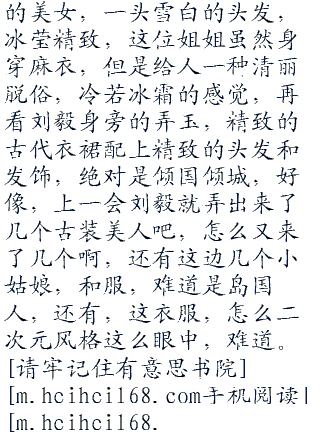 的美女，一头雪白的头发，
冰莹精致，这位姐姐虽然身
穿麻衣，但是给人一种清丽
脱俗，冷若冰霜的感觉，再
看刘毅身旁的弄玉，精致的
古代衣裙配上精致的头发和
发饰，绝对是倾国倾城，好
像，上一会刘毅就弄出来了
几个古装美人吧，怎么又来
了几个啊，还有这边几个小
姑娘，和服，难道是岛国
人，还有，这衣服，怎么二
次元风格这么眼中，难道。
[请牢记住有意思书院]
[m.hcihci168.com手机阅读|
[m.hcihci168.